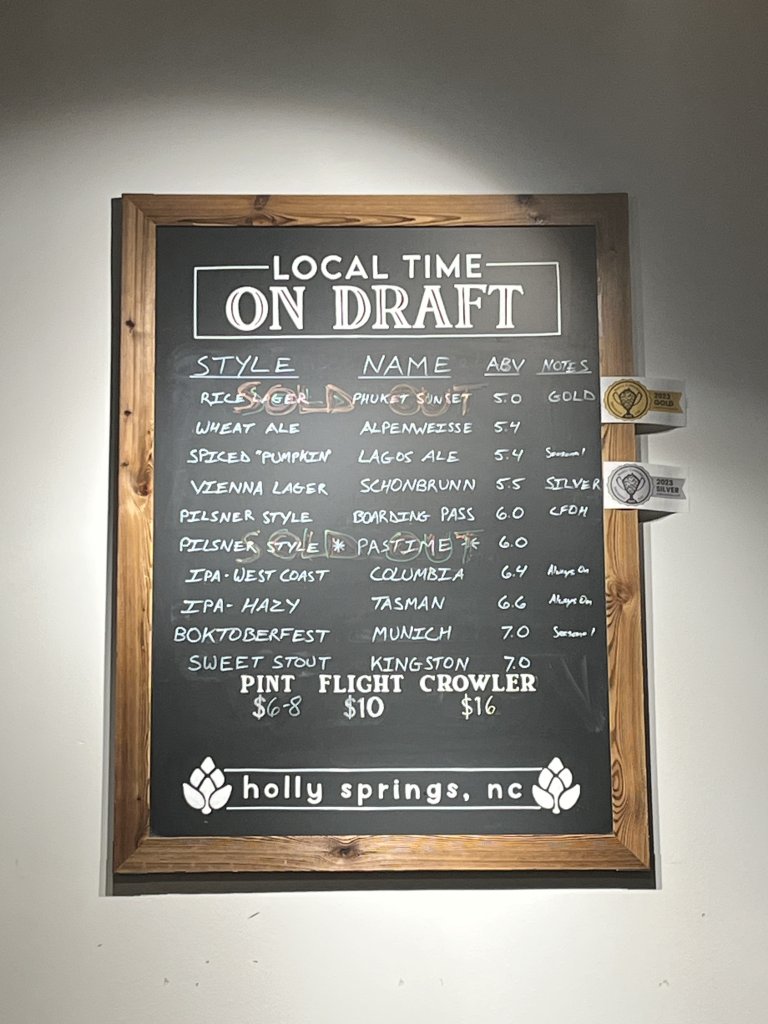 LOCAL TIME
ON DRAFT
STYLE NAME ABV NOTES
RICE LAGER PHUKET SUNSET 5.0 GOLD
SOLD OUT
2023 GOLD
WHEAT ALE ALPENWEISSE 5.4
SPICED "PUMPKIN" LAGOS ALE 5.4 Seasonal
VIENNA LAGER SCHONBRUNN 5.5 SILVER
2023 SILVER
PILSNER STYLE BOARDING PASS 6.0 CFDH
PILSNER STYLE * PASTIME * 6.0
SOLD OUT
IPA-WEST COAST COLUMBIA 6.4 Always On
IPA- HAZY TASMAN 6.6 Always On
BOKTOBERFEST MUNICH 7.0 Seasonal
SWEET STOUT KINGSTON 7.0
PINT FLIGHT CROWLER
$6-8 $10 $16
holly springs, nc